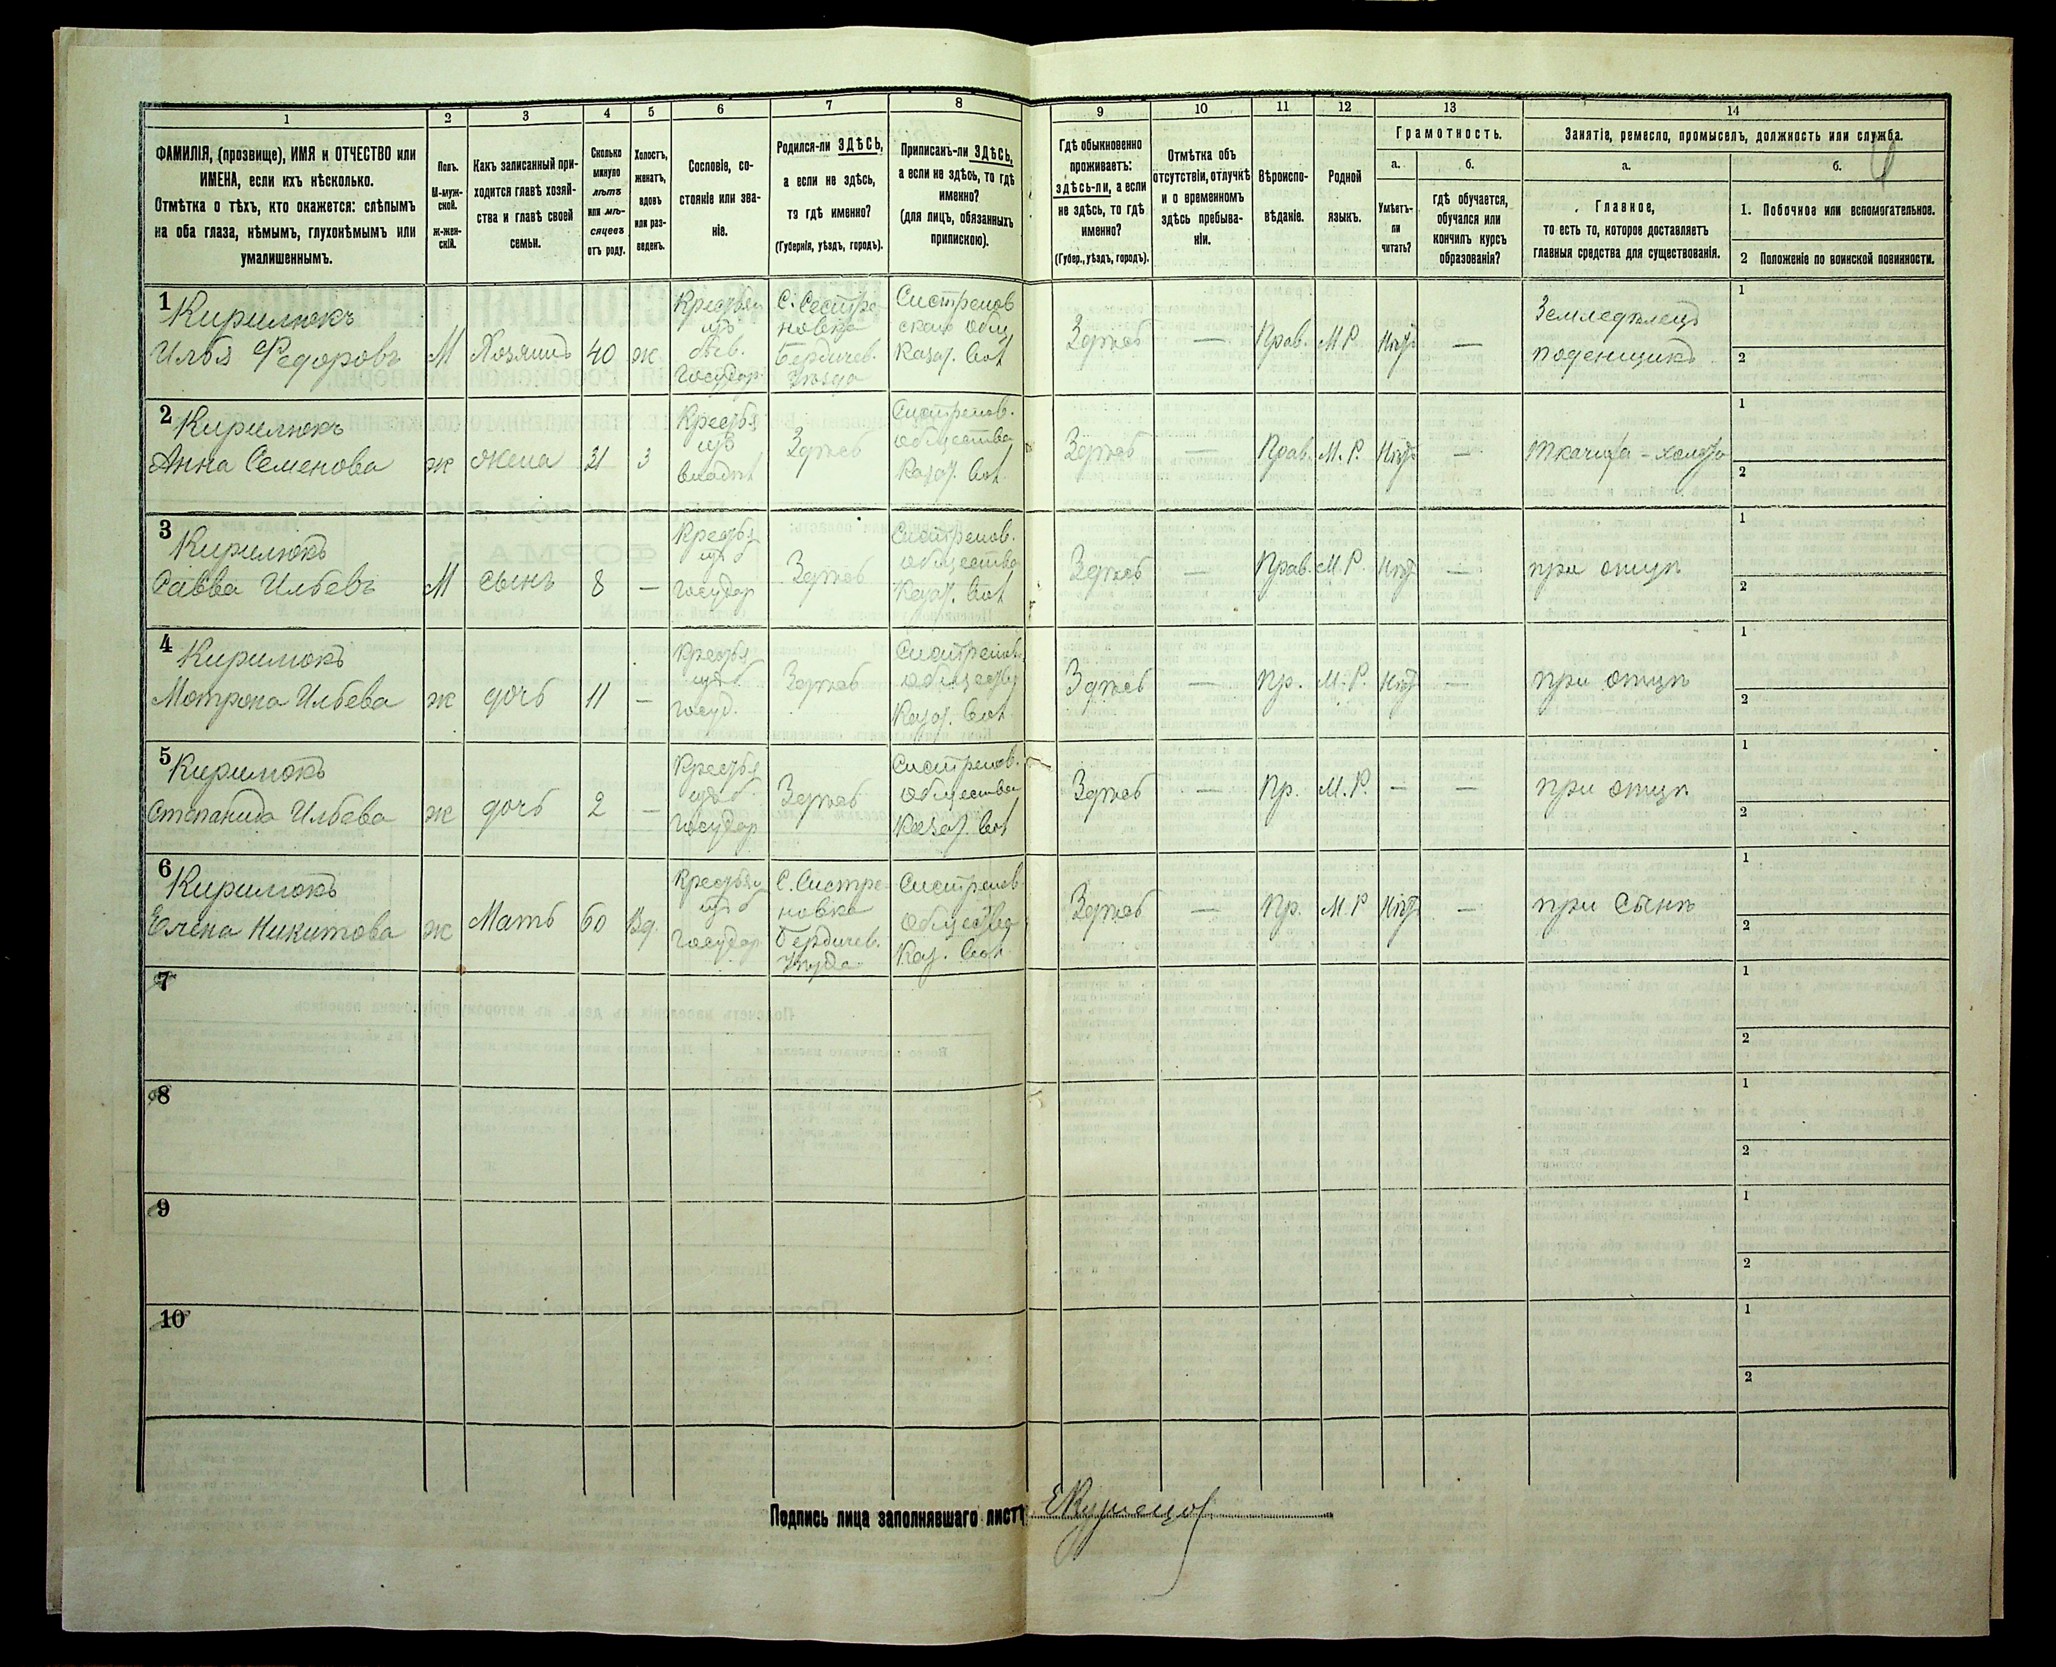 1
2
3
4
5
6
7
8
ФАМИЛІЯ, (прозвище), ИМЯ и ОТЧЕСТВО или
ИМЕНА, если ихъ нѣсколько.
Отмѣтка о тѣхъ, кто окажется: слѣпымъ
на оба глаза, нѣмымъ, глухонѣмымъ или
умалишеннымъ.
Полъ.
М-муж-
ской.
ж-жен-
скій.
Какъ записанный при-
ходится главѣ хозяй-
ства и главѣ своей
семьи.
Сколько
минуло
лѣтъ
или мѣ-
сяцевъ
отъ роду.
Холостъ,
женатъ,
вдовъ
или раз-
веденъ.
Сословіе, со-
стояніе или зва-
ніе.
Родился-ли ЗДѢСЬ,
а если не здѣсь,
то гдѣ именно?
(Губернія, уѣздъ, городъ).
Приписанъ-ли ЗДѢСЬ,
а если не здѣсь, то гдѣ
именно?
(для лицъ, обязанныхъ
припискою).
9
10
11
12
13
14
Гдѣ обыкновенно
проживаетъ:
здѣсь-ли, а если
не здѣсь, то гдѣ
именно?
(Губер., уѣздъ, городъ).
Отмѣтка объ
отсутствіи, отлучкѣ
и о временномъ
здѣсь пребыва-
ніи.
Вѣроиспо-
вѣданіе.
Родной
языкъ.
Грамотность.
а.
б.
Умѣетъ-
ли
читать?
гдѣ обучается,
обучался или
кончилъ курсъ
образованія?
Занятія, ремесло, промыселъ, должность или служба.
а.
б.
Главное,
то есть то, которое доставляетъ
главныя средства для существованія.
1. Побочное или вспомогательное.
2 Положеніе по воинской повинности.
1
Кирилюкъ
Илья Федоровъ
М
Хозяинъ
40
ж
Государ
С. Сестре-
новка
Бердичев.
Уѣзда
Здѣсь
—
Прав.
М.Р.
Нѣтъ
—
Земледѣлецъ
поденщикъ
1
2
2
Кирилюкъ
Анна Семенова
ж
жена
31
з
Здѣсь
Систренов.
общества
Здѣсь
—
Прав.
М.Р.
Нѣтъ
—
1
2
3
Кирилюкъ
Савва Ильевъ
М
сынъ
8
—
Государ
Здѣсь
Систренов.
общества
Здѣсь
—
Прав.
М.Р.
Нѣтъ
—
при отцѣ
1
2
4
Кирилюкъ
Мотрона Ильева
ж
дочь
11
—
Госуд.
Здѣсь
Систренов.
Здѣсь
—
Пр.
М.Р.
Нѣтъ
—
при отцѣ
1
2
5
Кирилюкъ
Степанида Ильева
ж
дочь
2
—
Государ
Здѣсь
Систренов.
общества
Здѣсь
—
Пр.
М.Р.
—
—
при отцѣ
1
2
6
Кирилюкъ
Елена Никитова
ж
Мать
60
Вд.
Государ
С. Систре-
новка
Бердичев.
Уѣзда
Систренов.
общества
Здѣсь
—
Пр.
М.Р
Нѣтъ
—
при сынѣ
1
2
7
1
2
8
1
2
9
1
2
10
1
2
Подпись лица заполнявшаго листъ